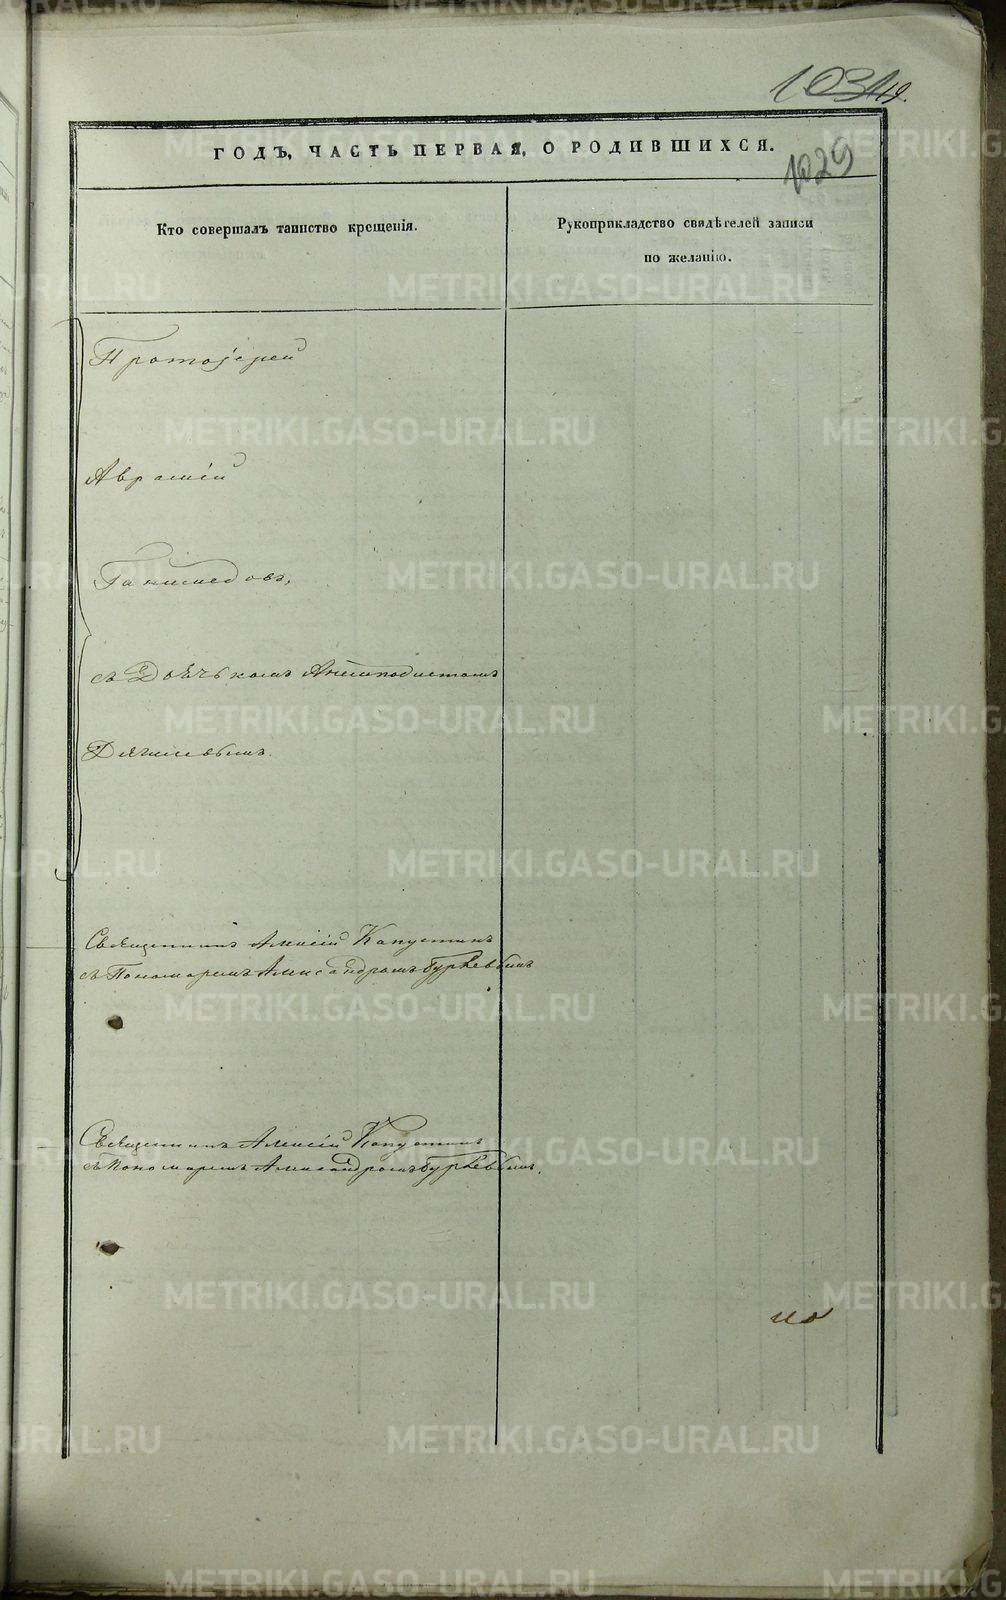 1031 19.
ГОДЪ, ЧАСТЬ ПЕРВАЯ, О РОДИВШИХСЯ.
1029
Кто совершалъ таинство крещенія.
Рукоприкладство свидѣтелей записи
по желанію.
Протоіерей
Авраамій
Ганимедовъ,
съ Дьячькомъ
Священникъ Алексій Капустинъ
съ Пономаремъ Александромъ
Священникъ Алексій Капустинъ
съ Пономаремъ Александромъ
METRIKI.GASO-URAL.RU